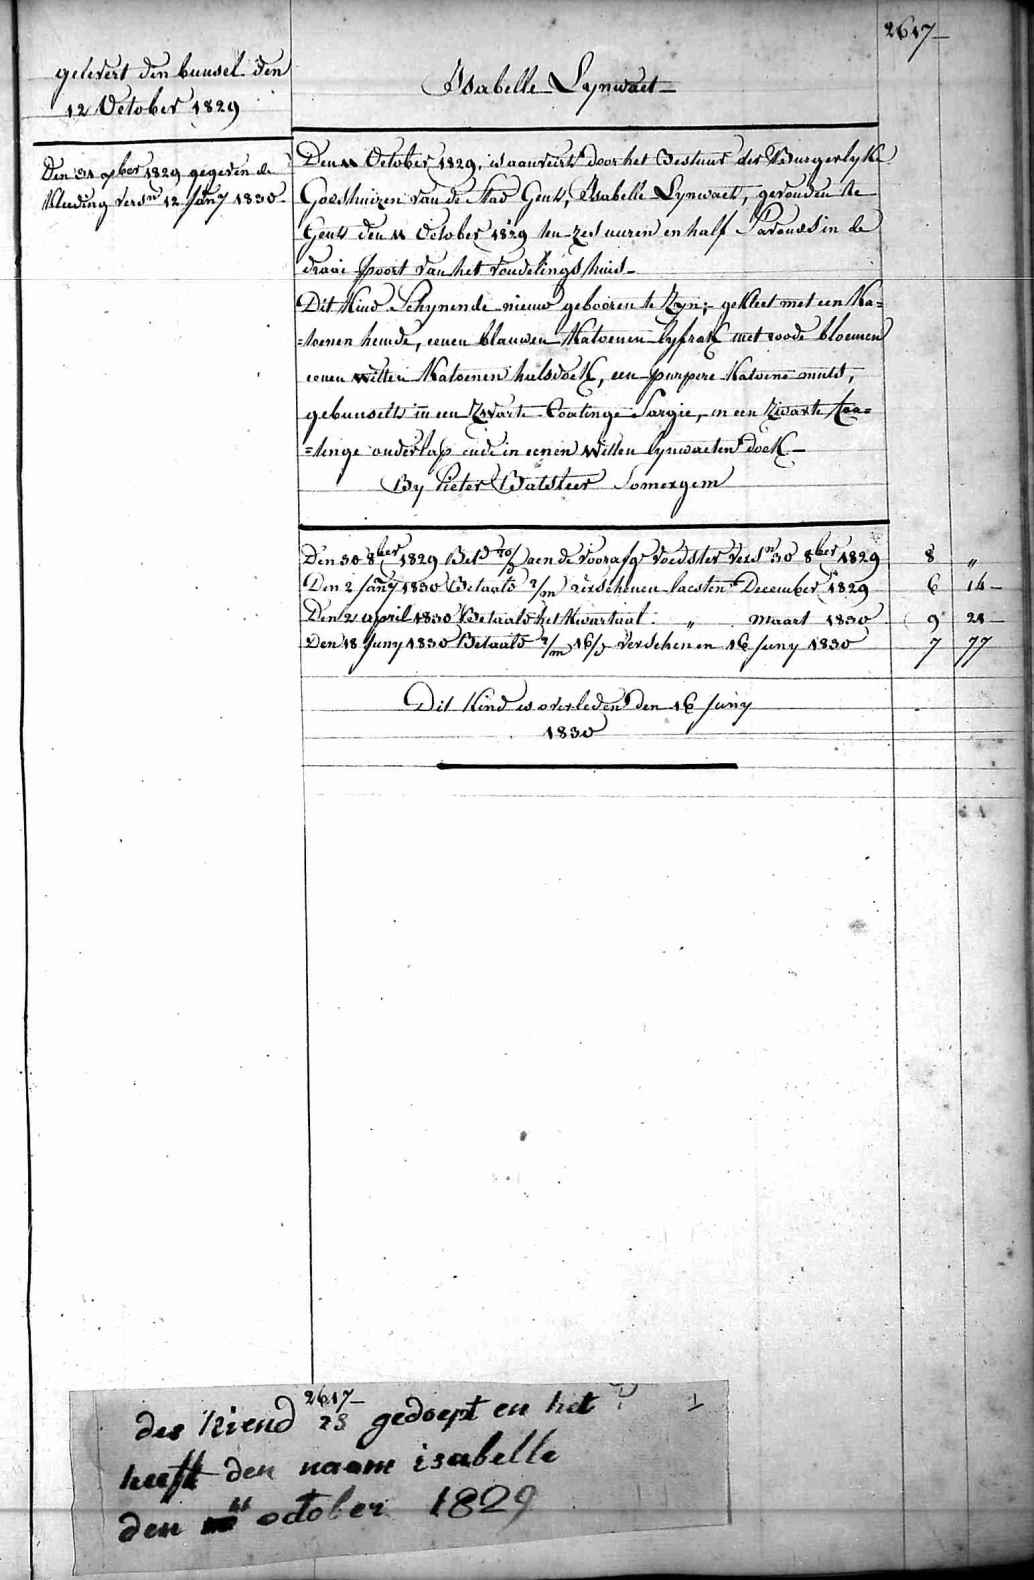 2617
gelevert den bunsel den
12 October 1829
Isabelle Lynwaet
Den 31 9ber 1829 gegeven de
Kleeding versn 12 Jany 1830
Den 11 October 1829, is aanveert door het Bestuur der Burgerlyke
Godshuizen van de Stad Gent, Isabelle Lynwaet, gevonden te
Gent den 11 October 1829 ten zes uuren en half s'avonds in de
draai poort van het vondelings huis
Dit Kind Schynende nieuw gebooren te Zyn; gekleet met een Ka=
=toenen hemde, eenen blauwen Katoenen lyfrok met roode bloemen
eenen witten Katoenen halsdoek, een purpere Katoene muts,
gebunselt in een Zwarte Coatinge Sargie, en een Zwarte Coa=
=tinge onderlap ende in eenen witten lynwaeten doek
By Pieter Batsleer Somergem
Den 30 8ber 1829 Betd 20/d aen de voorafge voedster versn 30 8ber 1829 8 „
Den 2 Jany 1830 Betaald 2/m verschenen laesten December 1829 6 14
Den 21 april 1830 Betaald het Kwartaal „ Maart 1830 9 21
Den 18 Juny 1830 Betaald 2/m 16/d verschenen 16 Juny 1830 7 77
Dit Kind is overleden den 16 Juny
1830
2617
des Kiend is gedoept en het
heeft den naam isabelle
den 11 october 1829